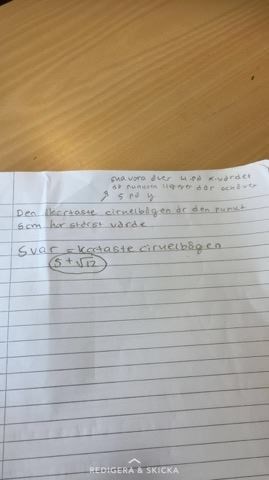 måvara över 4 på x-värdet
då punkten ligger där och över
5 på y
Den kortaste cirkelbågen är den punkt
som har störst värde
Svar = kortaste cirkelbågen
5 + √12
REDIGERA & SKICKA